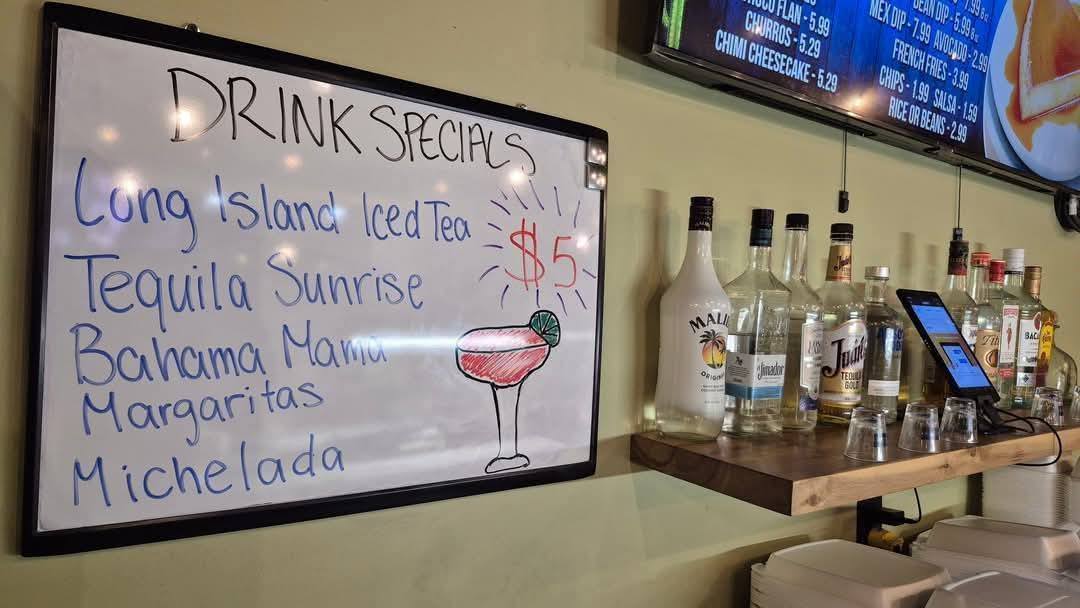 DRINK SPECIALS
Long Island Iced Tea
$5
Tequila Sunrise
Bahama Mama
Margaritas
Michelada
FLAN - 5.99
CHURROS - 5.29
CHIMI CHEESECAKE - 5.29
7.99
BEAN DIP - 5.99
MEX DIP - 7.99 AVOCADO - 2.99
FRENCH FRIES - 3.99
CHIPS - 1.99 SALSA - 1.59
RICE OR BEANS - 2.99
MALIB
ORIGINAL
el Jimador
Juárez
TEQUILA
GOLD
BACA